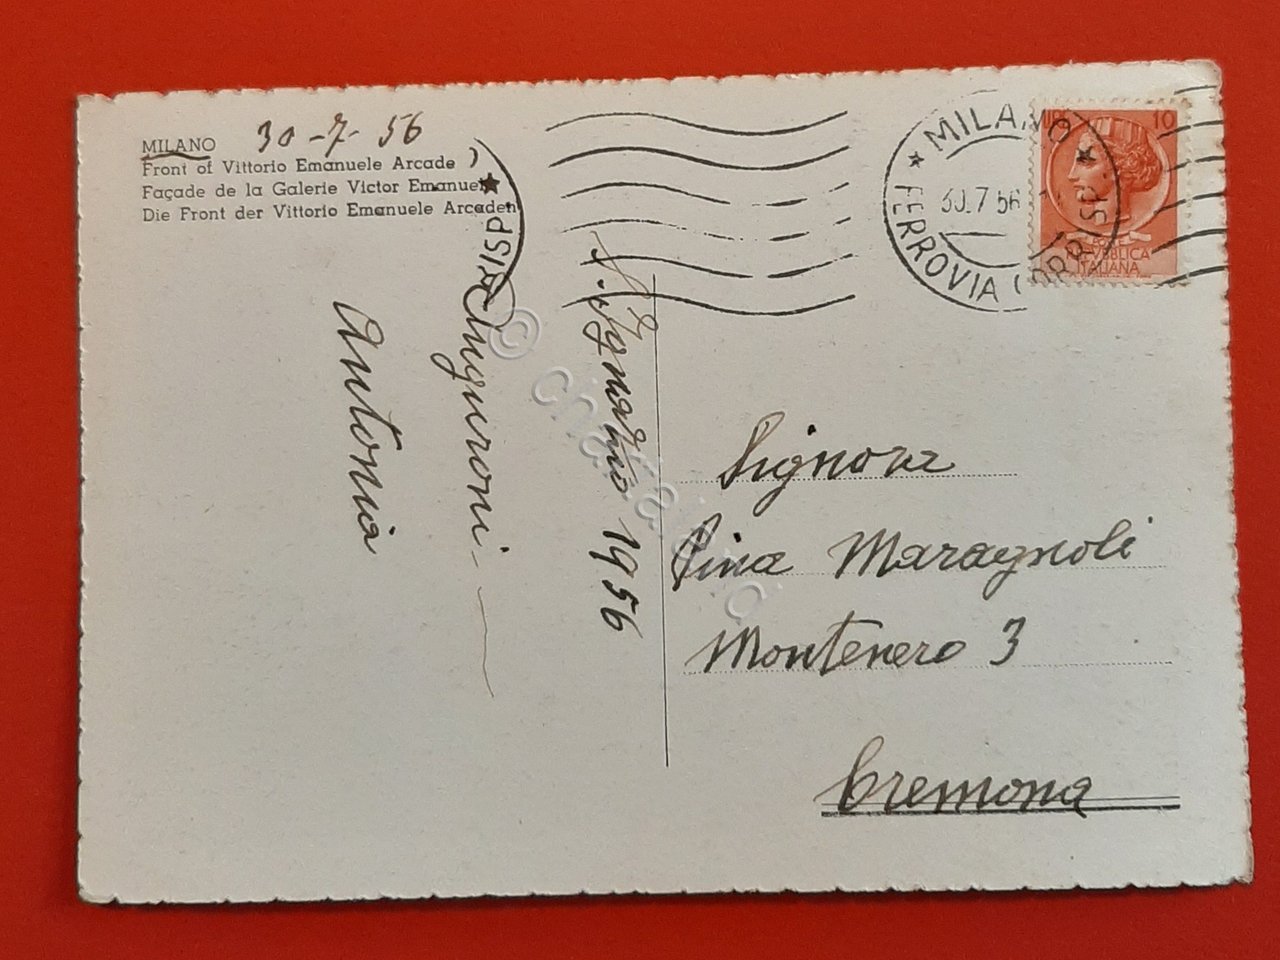 MILANO 30-7-56
Front of Vittorio Emanuele Arcade
Façade de la Galerie Victor Emanuel
Die Front der Vittorio Emanuele Arcaden
Auguroni
Antonia
1956
MILANO
FERROVIA CORR. ISP.
30.7.56
10
REPUBBLICA
ITALIANA
Signora
Pina Maragnoli
Montenero 3
Cremona
© charta.ru